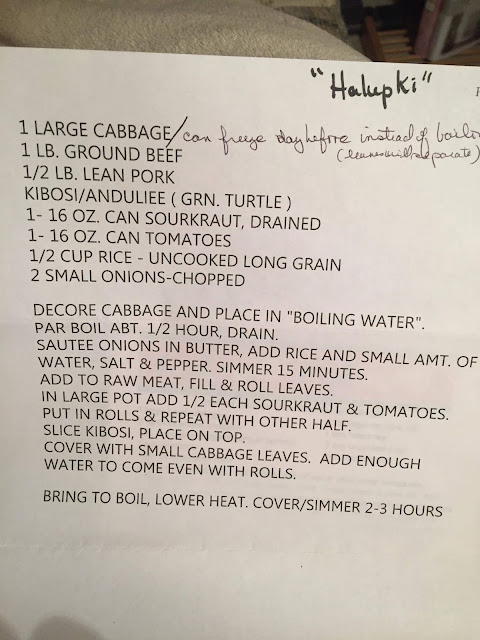 "Halupki"
1 LARGE CABBAGE/can freeze day before instead of
(leaves will separate)
1 LB. GROUND BEEF
1/2 LB. LEAN PORK
KIBOSI/ANDULIEE ( GRN. TURTLE )
1- 16 OZ. CAN SOURKRAUT, DRAINED
1- 16 OZ. CAN TOMATOES
1/2 CUP RICE - UNCOOKED LONG GRAIN
2 SMALL ONIONS-CHOPPED
DECORE CABBAGE AND PLACE IN "BOILING WATER".
PAR BOIL ABT. 1/2 HOUR, DRAIN.
SAUTEE ONIONS IN BUTTER, ADD RICE AND SMALL AMT. OF
WATER, SALT & PEPPER. SIMMER 15 MINUTES.
ADD TO RAW MEAT, FILL & ROLL LEAVES.
IN LARGE POT ADD 1/2 EACH SOURKRAUT & TOMATOES.
PUT IN ROLLS & REPEAT WITH OTHER HALF.
SLICE KIBOSI, PLACE ON TOP.
COVER WITH SMALL CABBAGE LEAVES. ADD ENOUGH
WATER TO COME EVEN WITH ROLLS.
BRING TO BOIL, LOWER HEAT. COVER/SIMMER 2-3 HOURS